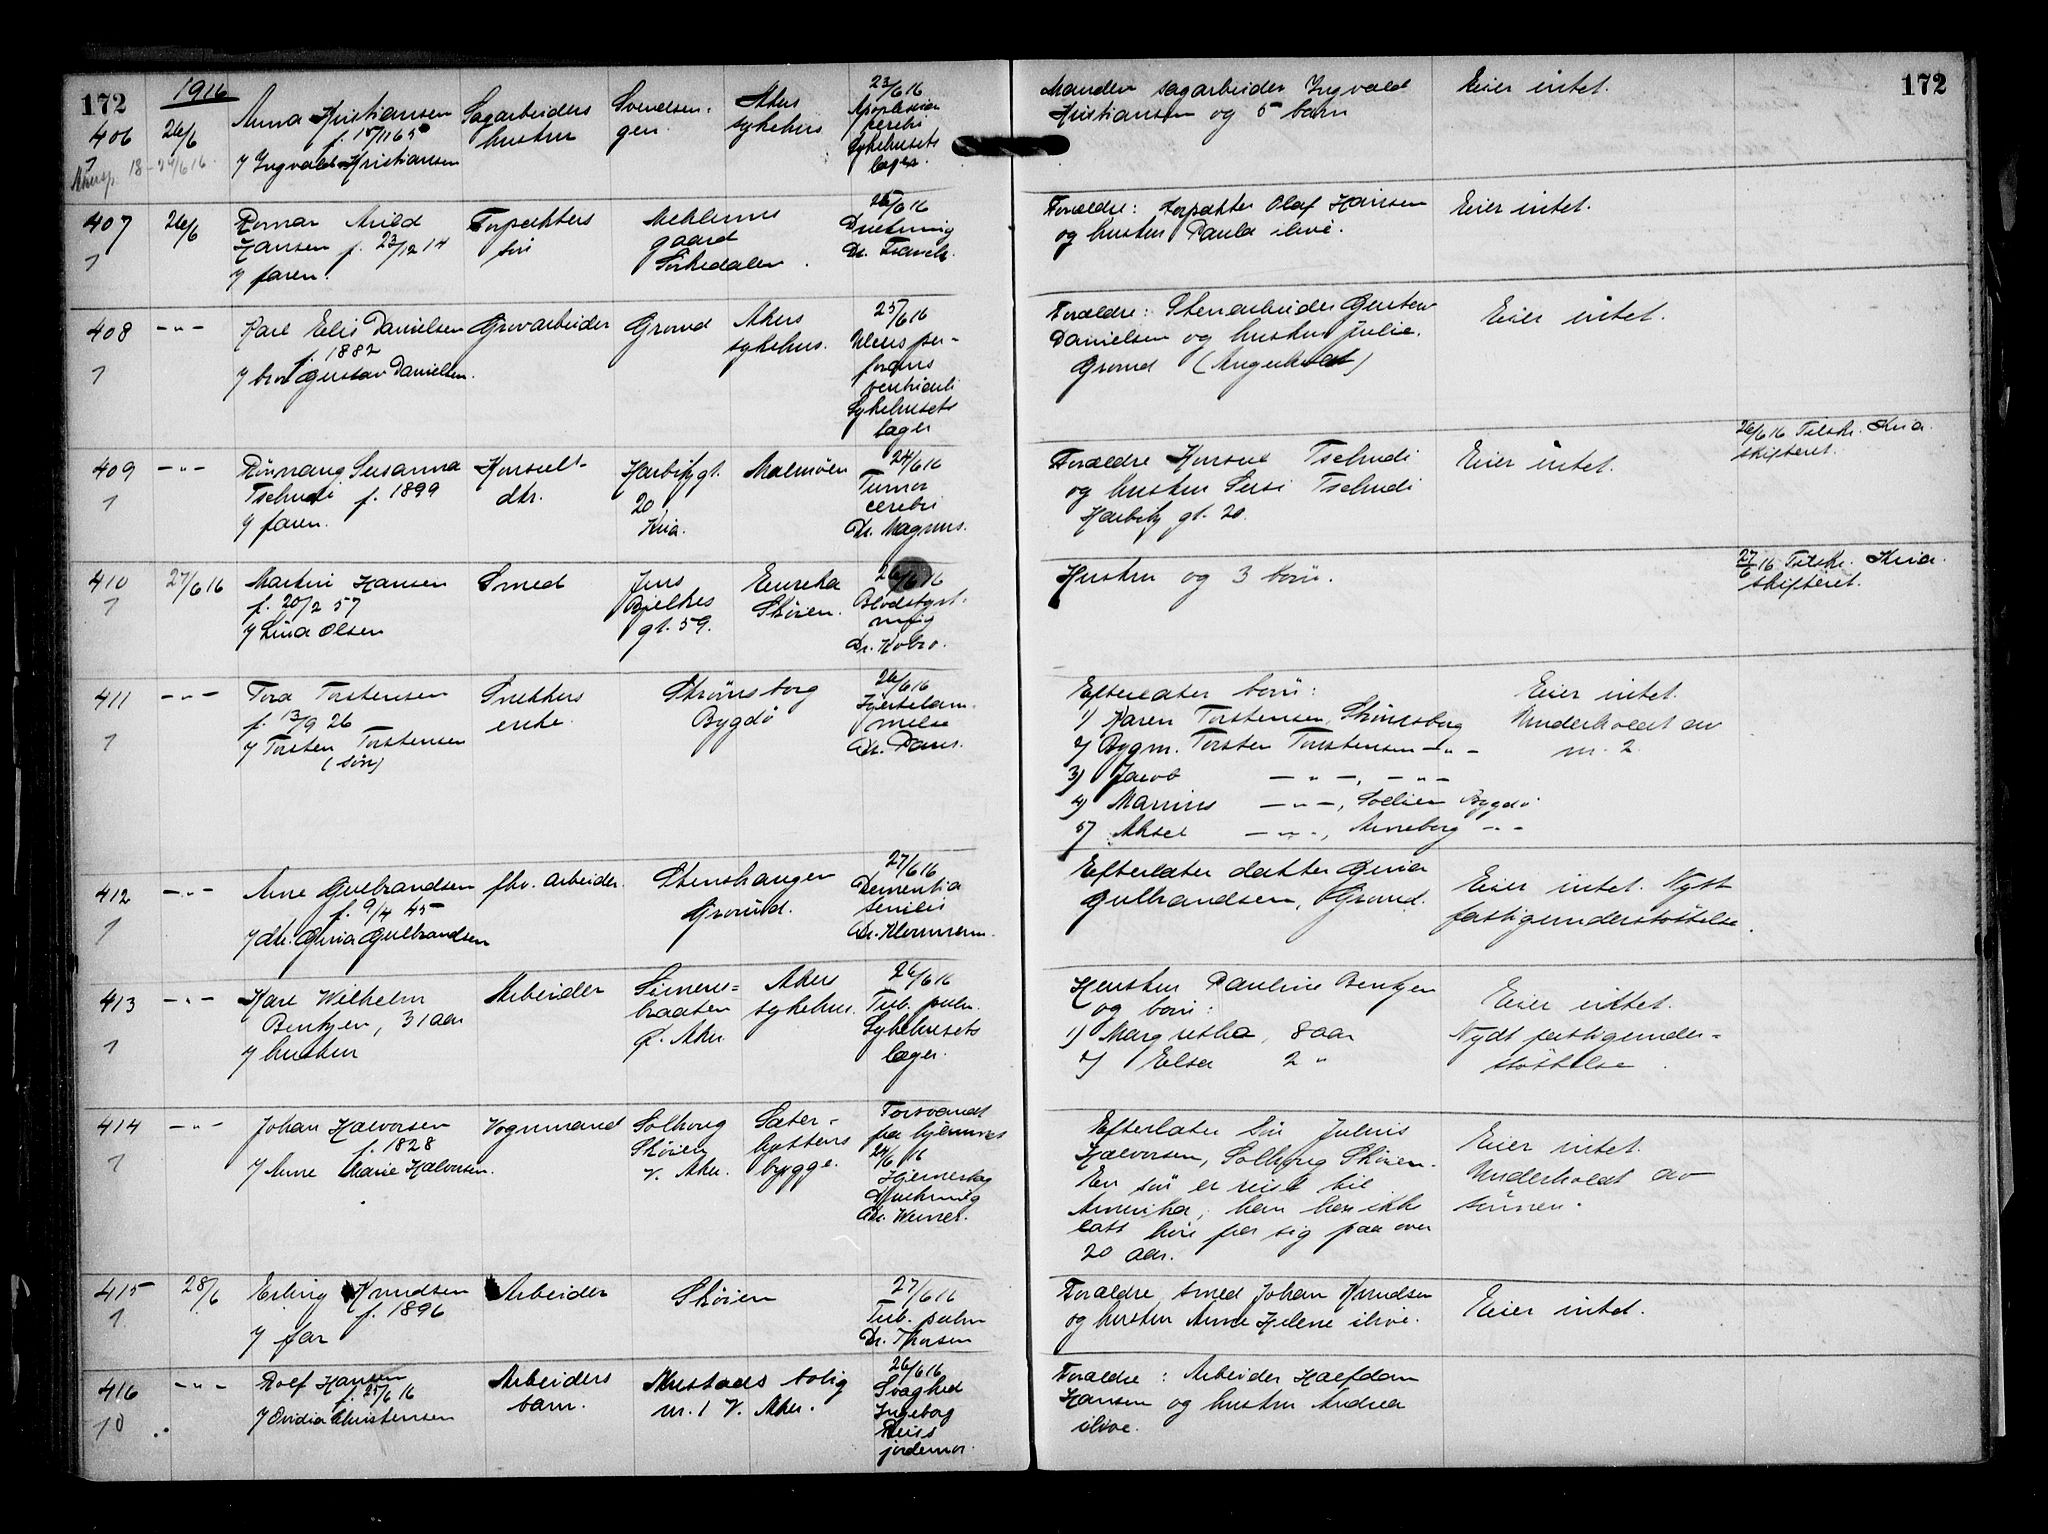 172
1916
172
406
26/6
Anna Kristiansen
f. 15/11 65
/ Ingvald Kristiansen
Sagarbeiders
hustru
Svendsen-
gen.
Akers
sykehus
23/6 16
Apoplexia
cerebri
Sykehusets
læge
18-24/6 16
Manden sagarbeider Ingvald
Kristiansen og 5 barn
Eier intet.
407
26/6
1
Hansen f. 23/12 14
/ faren.
Forpakters
søn
gaard
Sørkedalen
25/6 16
Drukning
Forældre: Forpakter Olaf Hansen
og hustru Paula ilive.
Eier intet.
408
-"-
1
Karl Elis Danielsen
f. 1882
/ bror Gustav Danielsen.
Grovarbeider
Grorud
Akers
sykehus.
25/6 16
Ulcus per-
forans
ventriculi
Sykehusets
læger
Forældre: Stenarbeider Gustav
Danielsen og hustru Julie.
Grorud
Eier intet.
409
-"-
1
Rønnaug Susanna
Tschudi f. 1899
/ faren.
Konsuls-
dtr.
Harbitz gt.
20
Kria.
Malmøen
24/6 16
Tumor
cerebri
Dr. Magnus.
Forældre Konsul Tschudi
og hustru Susi Tschudi
Harbitz gt. 20.
Eier intet.
26/6 16 Tilskr. Kria.
skifteret.
410
27/6 16
1
Martin Hansen
f. 20/2 57
/ Lina Olsen
Smed
Jens
Bjelkes
gt. 59.
Eureka
Skøien.
26/6 16
Blodstyrt-
ning
Dr. Kobro.
Hustru og 3 børn.
27/6 16 Tilskr. Kria.
skifteret.
411
-"-
1
Tora Torstensen
f. 13/9 26
/ Torsten Torstensen
(søn)
Snekkers
enke.
Strømsborg
Bygdø
26/6 16
Hjertelam-
melse
Dr. Paus.
Efterlater børn:
1) Karen Torstensen, Strømsborg
2) Bygm. Torsten Torstensen -"-
3) Jacob -"-, -"-
4) Marius -"-, Bygdø
5) Aksel -"-, Anneborg -"-
Eier intet.
Underholdt av
nr. 2.
412
-"-
1
Arne Gulbrandsen
f. 9/4 45
/ dtr. Gina Gulbrandsen
fhv. arbeider.
Stenshaugen
Grorud.
27/6 16
Dementia
senilis
Efterlater datter Gina
Gulbrandsen, Grorud.
Eier intet. Nydt
fattigunderstøttelse.
413
-"-
1
Karl Wilhelm
Bentzen, 31 aar
/ hustru
Arbeider
braaten
Ø. Aker.
Akers
sykehus.
26/6 16
Tub. pulm.
Sykehusets
læger.
Hustru Pauline Bentzen
og børn:
1) Margretha, 8 aar
2) Elsa 2 "
Eier intet.
Nydt fattigunder-
støttelse.
414
-"-
1
Johan Halvorsen
f. 1828
/ Anne Marie Halvorsen.
Vognmand
Solhoug
Skøien
V. Aker.
Sæter-
hyttens
brygge.
Forsvandt
fra hjemmet
24/6 16
Drukning
Efterlater søn Julius
Halvorsen, Solhoug Skøien.
En søn er reist til
Amerika, han har ikke
latt høre fra sig paa over
20 aar.
Eier intet.
Underholdt av
sønnen.
415
28/6
1
Erling Knudsen
f. 1896
/ far
Arbeider
Skøien
27/6 16
Tub. pulm
Dr. Thorsen
Forældre smed Johan Knudsen
og hustru Anna Helene ilive.
Eier intet.
416
-"-
10
Rolf Hansen
f. 25/6 16
/ Ovidia Christensen
Arbeiders
barn.
Mustads bolig
nr. 1 V. Aker.
26/6 16
Svaghed
Ingeborg
jordemor.
Forældre: Arbeider Halfdan
Hansen og hustru Andrea
ilive.